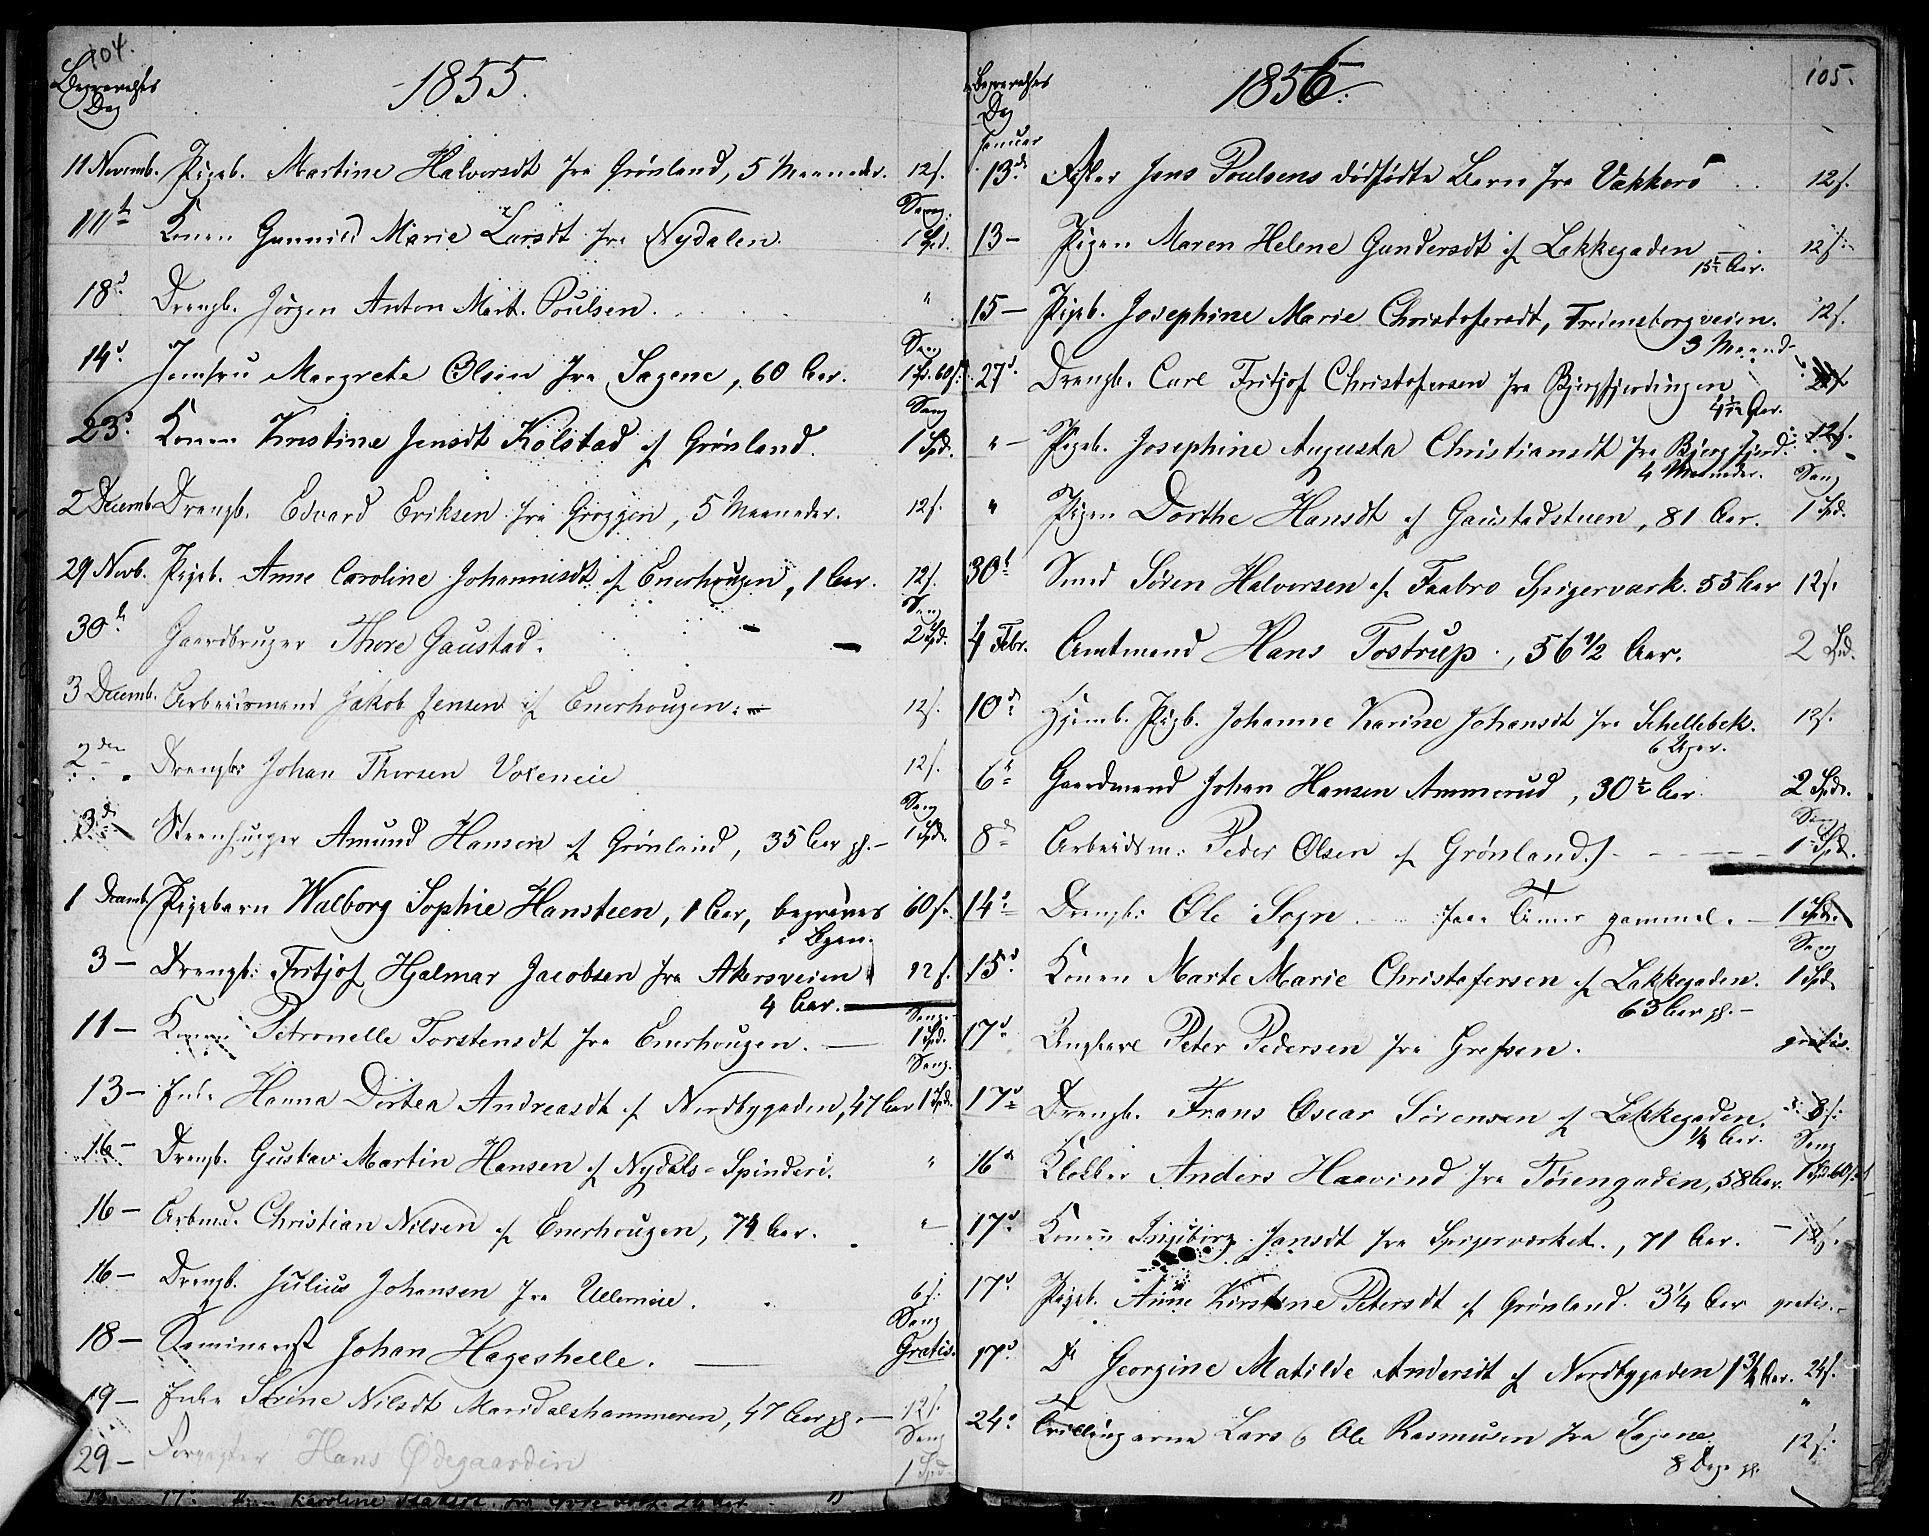 104.
Begravelses
Dag
1855.
11 Novemb. Pigeb. Martine Halvorsdt fra Grønland, 5 Maaneder. 12 s.
Sang
11te Konen Gunnild Marie Larsdt fra Nydalen. 1 Spd.
18d. Drengb. Jørgen Anton Mart. Poulsen. "
Sang
14d. Jomfru Margrete Olsen fra Sagene, 60 Aar. 1 Sp. 60 s.
Sang
23d. Konen Kristine Jensdt Kolstad af Grønland. 1 Spd.
2 Decemb. Drengb. Edvard Eriksen fra 5 Maaneder. 12 s.
29 Novb. Pigeb. Anne Caroline Johannesdt af Enerhougen, 1 Aar. 12 s.
Sang
30te Gaardbruger Thore Gaustad. 2 Spd.
3 Decemb. Arbeidsmand Jakob Jensen af Enerhougen. 12 s.
2den Drengb: Johan Thorsen 12 s.
Sang
3d. Steenhugger Amund Hansen af Grønland, 35 Aar gl. 1 Spd.
1 Decemb. Pigebarn Walborg Sophie Hansteen, 1 Aar, begraves 60 s.
3 — Drengb: Fritjof Hjalmar Jacobsen fra Akersveien 12 s.
4 Aar.
Sang
11 — Konen Petronelle Torstensdt fra Enerhougen. 1 Spd.
Sang
13 — Enke Hanna Dortea Andreasdt af Nordbygaden, 47 Aar 1 Spd.
16 — Drengb. Gustav Martin Hansen af Nydals-Spinderi. "
16 — Arbmd. Christian Nilsen af Enerhougen, 74 Aar. "
16 — Drengb. Julius Johansen fra Ulleneie. 6 s.
Sang
18 — Seminarist Johan Hageshelle. Gratis.
19 — Enke Nilsdt Maridalshammeren, 47 Aar gl. — 12 s.
Sang
29 — Forpagter Hans Ødegaarden 1 Spd.
105.
Begravelses
Dag
1856.
Januar
13d. Efter Jens Poulsens dødfødte Barn fra Vækkerø 12 s.
13 — Pigen Maren Helene Gundersdt af Lakkegaden 12 s.
15½ Aar.
15 — Pigeb. Josephine Marie Christofersdt, 12 s.
3 Maand.
27d. Drengb. Carl Fritjof Christofersen fra Bjergfjerdingen
Aar.
" — Pigeb. Josephine Augusta Christiansdt fra Bjergfjerd. 12 s.
4 Maaneder. Sang
" Pigen Dorthe Hansdt af Gaustadstuen, 81 Aar. 1 Spd.
30te Smed Søren Halvorsen af Faabro Spigerværk. 55 Aar 12 s.
4 Febr. Amtmand Hans Tostrup, 56 1/2 Aar. 2 Spd.
10d. Hjemb. Pigb. Johanne Karine Johansdt fra Schellebek. 12 s.
6 Uger.
6te Gaardmand Johan Hansen Ammerud, 30½ Aar. 2 Spdr.
Sang
8d Arbeidsm: Peder Olsen af Grønland. 1 Spd.
14d. Drengb: Ole Sogn Timer gammel. — 1 Spd.
Sang
15d. Konen Marte Marie Christofersen af Lakkegaden. 1 Spd.
63 Aar gl. —
17d. Ungkarl Peter Pedersen fra Grefsen. gratis.
17d. Drengb. Frans Oscar Sørensen af Lakkegaden. 8 s.
¼ Aar. Sang
16d Klokker Anders Haavind fra 58 Aar. 1 Spd 60 s.
17d. Konen Ingeborg Jansdt fra Spigerværket., 71 Aar. — 12 s.
17d. Pigeb. Anne Kirstine Petersdt af Grønland. 3¼ Aar gratis.
17d. Do Georgine Matilde Andersdt af Nordbygaden 1¾ Aar. 24 s.
24d. Tvillingerne Lars & Ole Rasmusen fra Sagene. 12 s.
8 Dage gl.